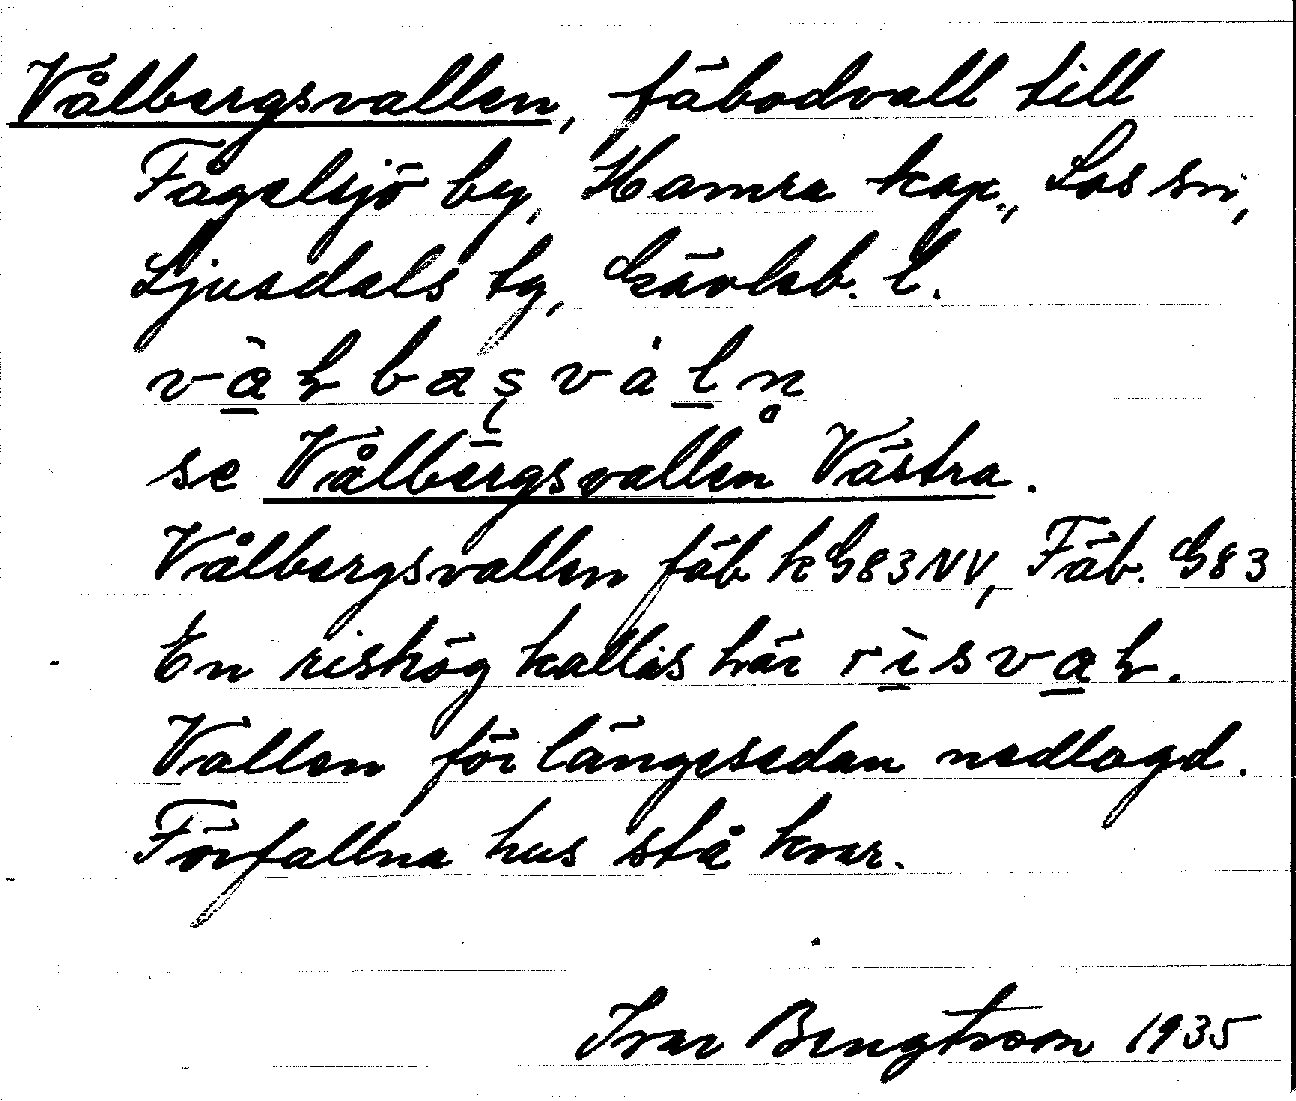 Vålbergsvallen, fäbodvall till
Fågelsjö by, Hamra kap., Los sn,
Ljusdals tg, Gävleb. l.
se Vålbergsvallen Västra.
Vålbergsvallen fäb k G83NV, Fäb. G83
En rishög kallas här
Vallen för längesedan nedlagd.
Förfallna hus stå kvar.
Ivar Bengtsson 1935